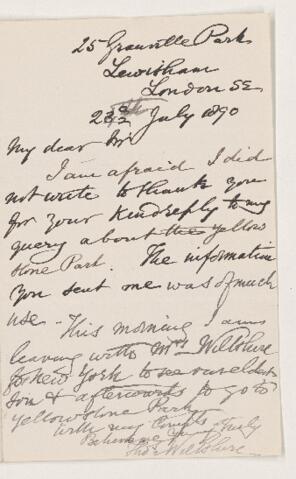 25 Granville Park
Lewisham
London SE
July 1890
My dear Sir
I am afraid I did
not write to thank you
for your kind reply to my
query about the Yellow
stone Park. The information
you sent me was of much
use. This morning I am
leaving with Mrs Wiltshire
for New York to see our eldest
son & afterwards to go to
Yellowstone Park
With many
Believe me yours truly
Thos Wiltshire.